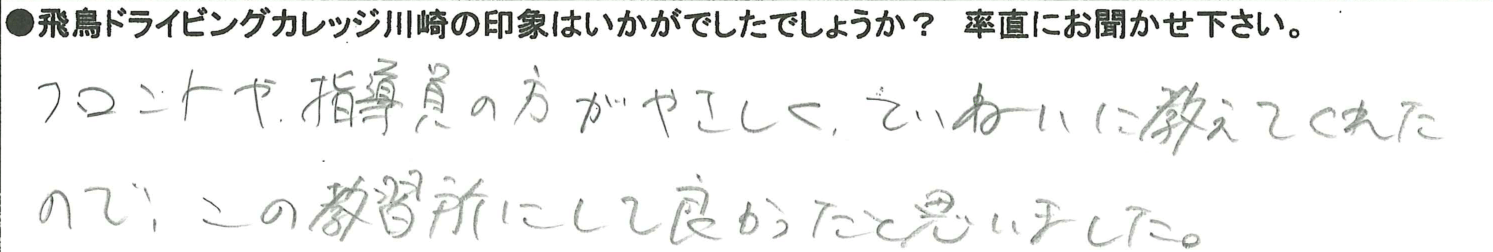 ●飛鳥ドライビングカレッジ川崎の印象はいかがでしたでしょうか？ 率直にお聞かせ下さい。
フロントや、指導員の方がやさしく、ていねいに教えてくれた
ので、この教習所にして良かったと思いました。